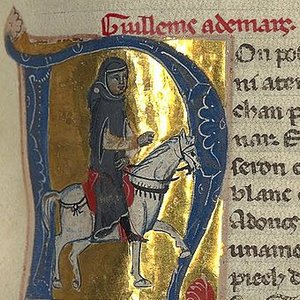 Guillems ademars.
On poc
ni aten
chan p
nar. E
seron e
blanc
Adonc
unamo
piech d